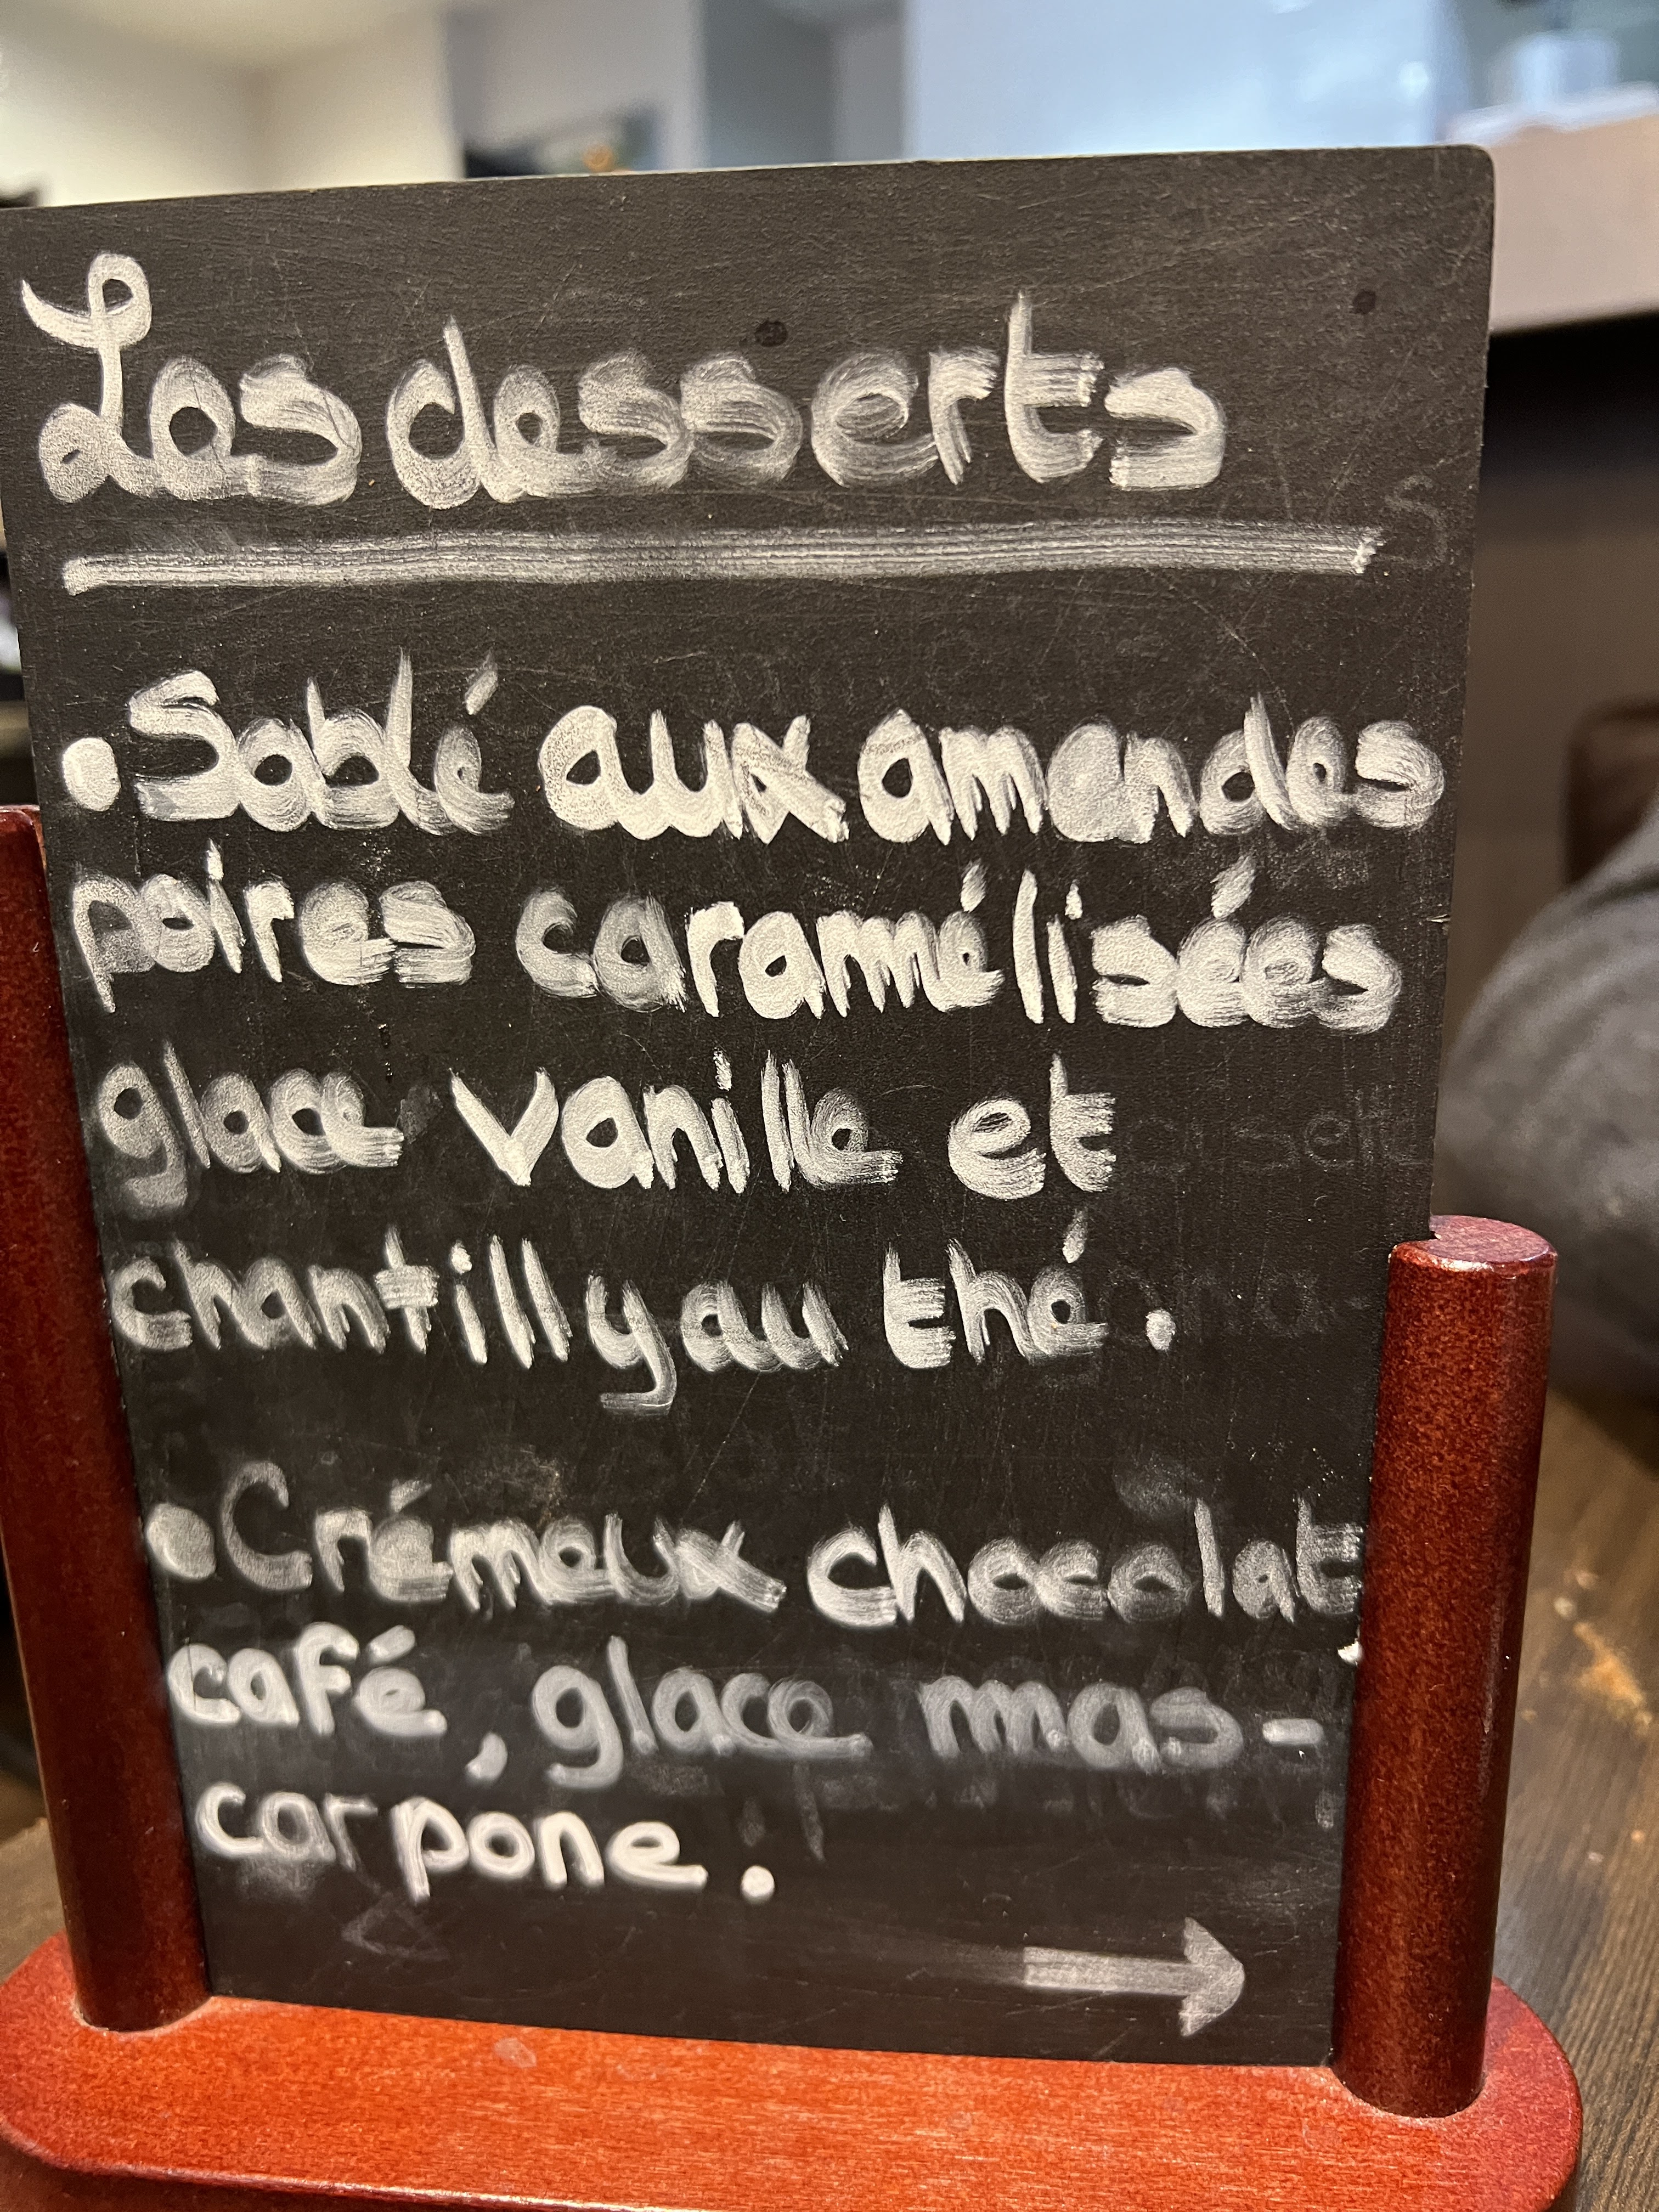 Les desserts
• Sablé aux amandes
poires caramélisées
glace vanille et
chantilly au thé.
• Crémeux chocolat
café, glace mas-
carpone.